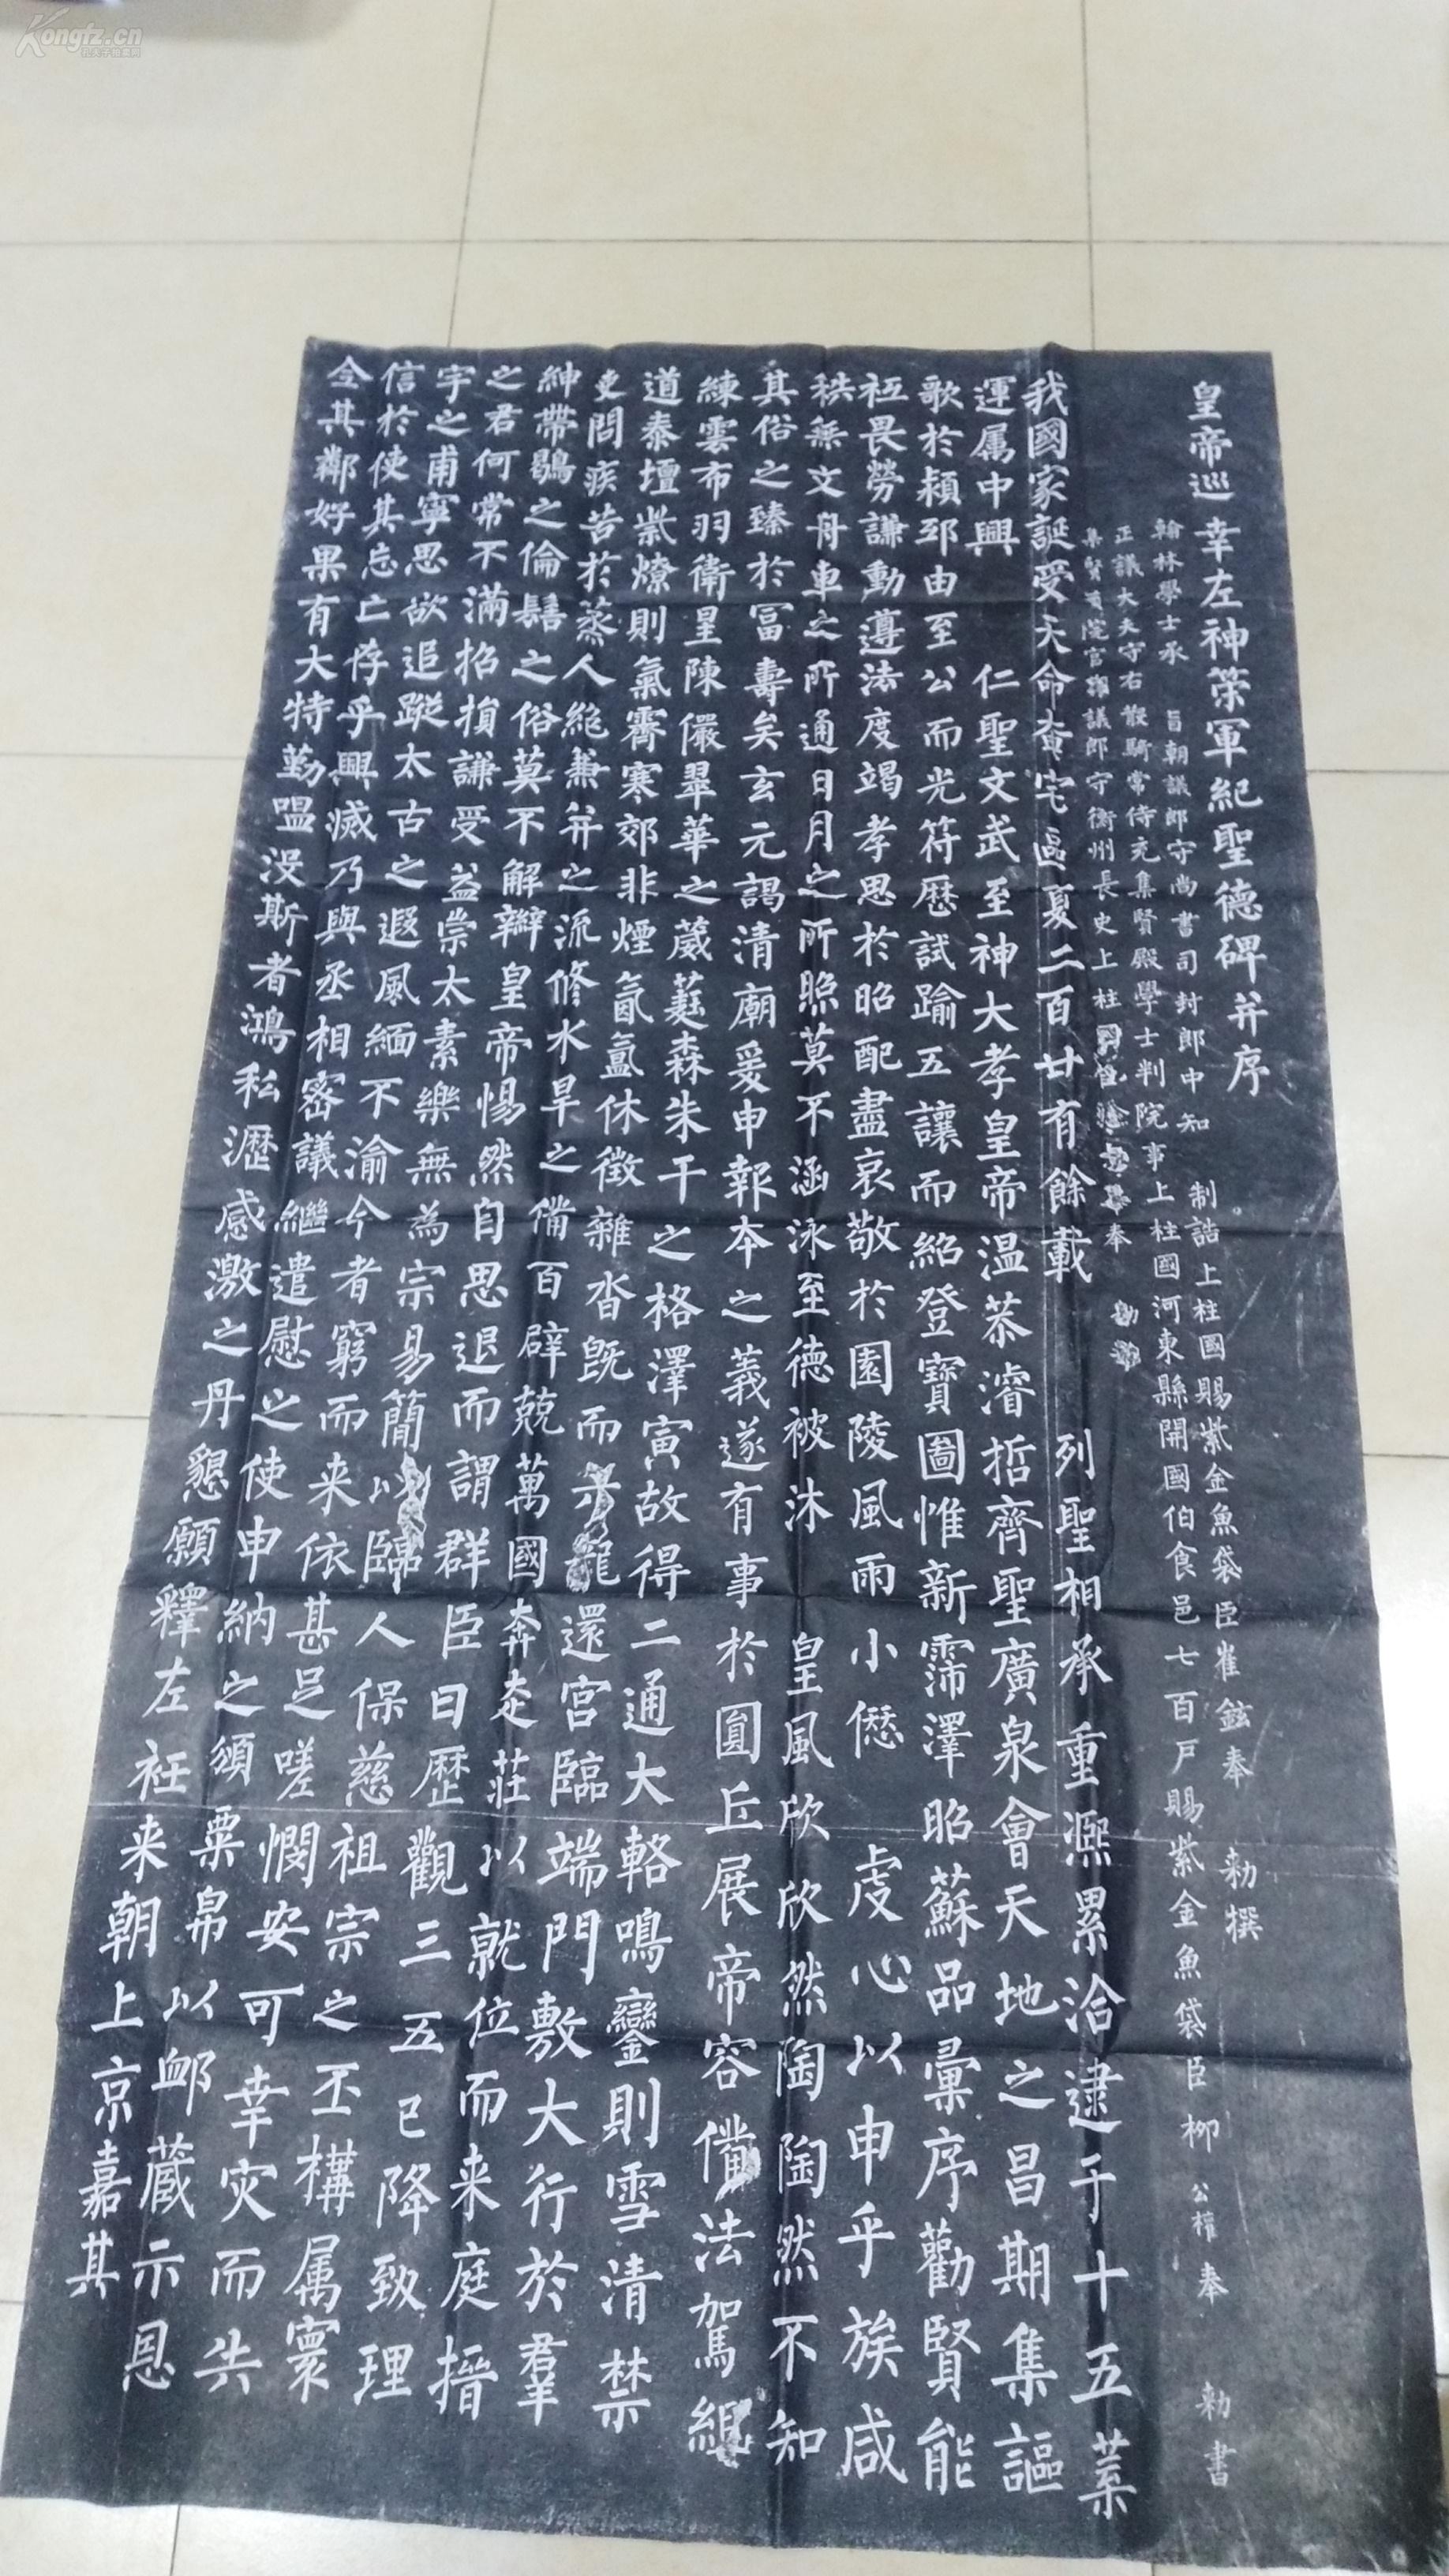 皇帝巡幸左神策軍紀聖德碑并序
翰林學士承 旨朝議郎守尚書司封郎中知 制誥上柱國賜紫金魚袋臣崔鉉奉 勑撰
正議大夫守右散騎常侍充集賢殿學士判院事上柱國河東縣開國伯食邑七百戶賜紫金魚袋臣柳公權奉 勑書
集賢直院官朝議郎守衡州長史上柱國臣 奉 勑
我國家誕受天命奄宅區夏二百廿有餘載 列聖相承重熙累洽逮于十五葉
運属中興 仁聖文武至神大孝皇帝温恭濬哲齊聖廣泉會天地之昌期集謳
歌於潁邸由至公而光符歷試踰五讓而紹登寶圖惟新霈澤昭蘇品彙序勸賢能
祗畏勞謙動遵法度竭孝思於昭配盡哀敬於園陵風雨小僽 虔心以申乎族咸
秩無文舟車之所通日月之所照莫不涵泳至德被沐 皇風欣欣然陶陶然不知
其俗之臻於富壽矣玄元謁清廟爰申報本之義遂有事於圓丘展帝容俻法駕組
練雲布羽衛星陳儼翠華之葳蕤森朱干之格澤寅故得二通大輅鳴鑾則雪清禁
道泰壇紫燎則氣霽寒郊非煙氤氳休徵雜沓既而六龍還宮臨端門敷大行於羣
吏問疾苦於蒸人絕兼并之流修水旱之俻百辟兢萬國奔走莊以就位而来庭搢
紳帶鶡之倫髽之俗莫不解辮皇帝惕然自思退而謂群臣曰歷觀三五已降致理
之君何常不滿招損謙受益崇太素樂無為宗易簡以臨人保慈祖宗之丕構属寰
宇之甫寧思欲追蹤太古之遐風緬不渝今者窮而来依甚足嗟憫安可幸灾而失
信於使其忘亡存乎興滅乃與丞相密議繼遣慰之使申納之頒粟帛以卹蔵示恩
今其鄰好果有大特勤嗢没斯者鴻私瀝感激之丹懇願釋左衽来朝上京嘉其